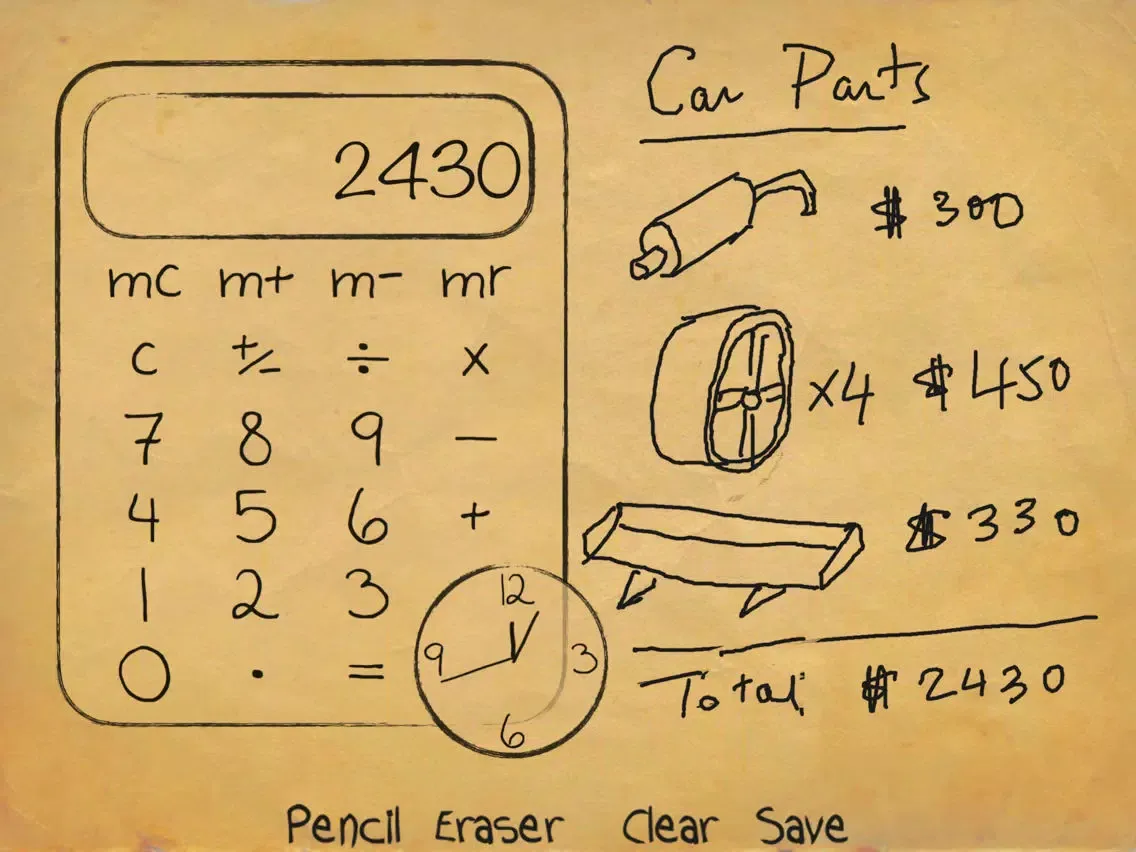 2430
mc m+ m- mr
c +/- ÷ x
7 8 9 −
4 5 6 +
1 2 3
0 . =
12
9 3
6
Car Parts
$ 300
x4 $ 450
$ 330
Total: $ 2430
Pencil Eraser Clear Save